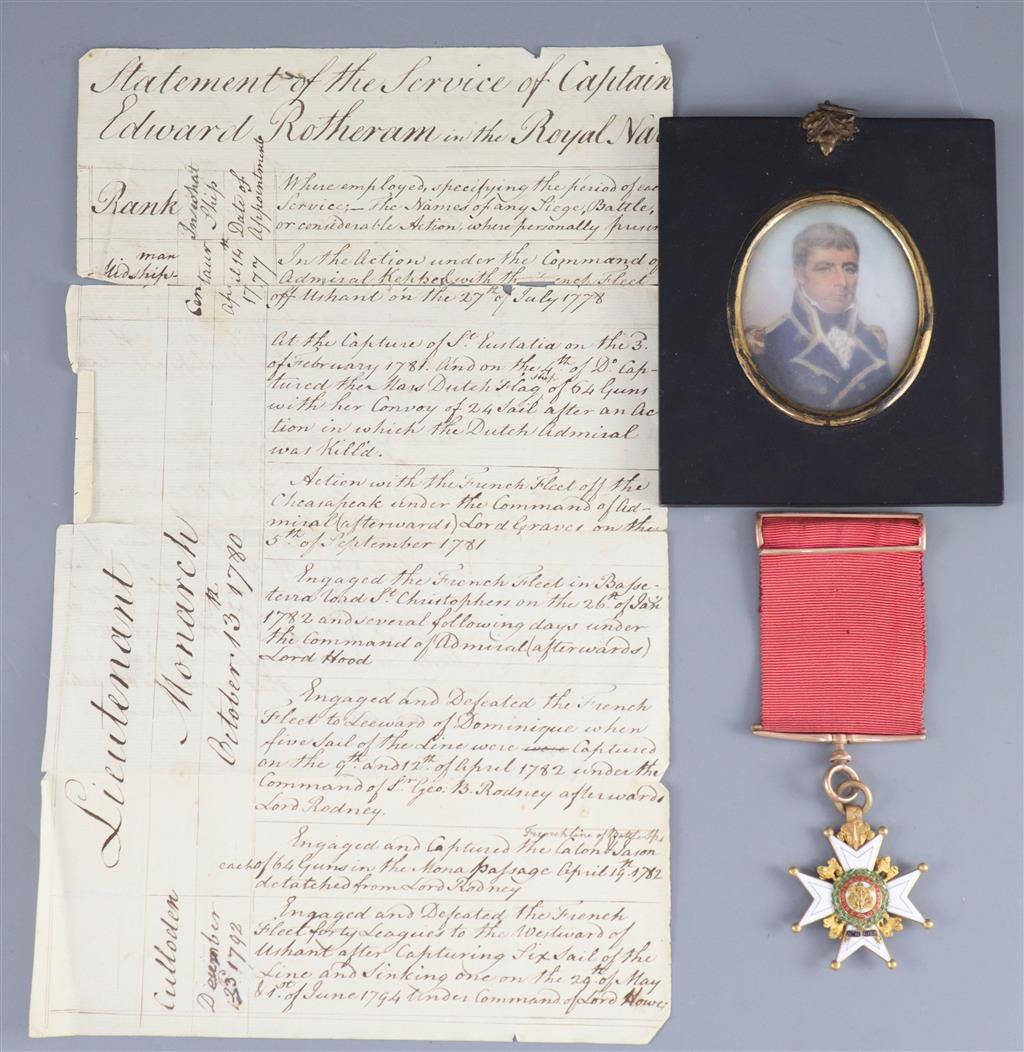 Statement of the Service of Captain
Edward Rotheram in the Royal Na
Rank
In what
Ship
Date of
Appointment
Where employed, specifying the period of eac
Service;— The Names of any Siege, Battle,
or considerable Action, where personally presen
Midship-
man
Centaur
April 14th
1777
In the Action under the Command of
Admiral Keppel with the French Fleet
off Ushant on the 27th of July 1778
Lieutenant
Monarch
October 13th 1780
At the Capture of St Eustatia on the 3d
of February 1781. And on the 4th of Do Cap-
tured the Mars Dutch Flag ship of 64 Guns
with her Convoy of 24 Sail after an Ac
tion in which the Dutch Admiral
was Kill'd.
Action with the French Fleet off the
Cheasapeak under the Command of Ad-
miral (afterwards) Lord Graves on the
5th of September 1781
Engaged the French Fleet in Basse-
terra road St Christophers on the 26th of Jany
1782 and several following days under
the Command of Admiral (afterwards)
Lord Hood
Engaged and Defeated the French
Fleet to Leeward of Dominique when
five Sail of the Line were were Captured
on the 9th and 12th of April 1782 under the
Command of Sr Geo: B. Rodney afterwards
Lord Rodney.
French line of Battle Ships
Engaged and Captured the Caton & Jason
each of 64 Guns in the Mona passage April 19th 1782
detatched from Lord Rodney
Culloden
December
23d 1792
Engaged and Defeated the French
Fleet forty Leagues to the Westward of
Ushant after Capturing Six Sail of the
Line and Sinking one on the 29th of May
& 1st of June 1794 Under Command of Lord Howe;